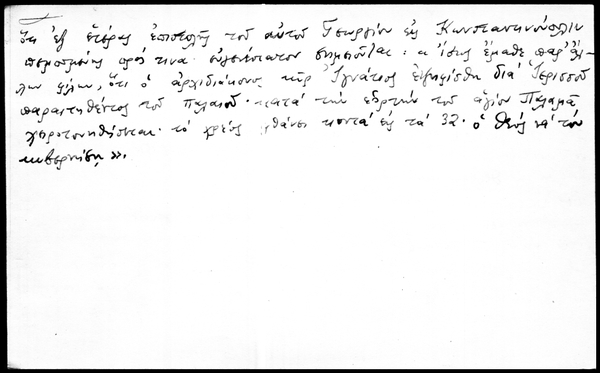 Ἐν ἐξ ἑτέρας ἐπιστολῆς τοῦ αὐτοῦ Γεωργίου εἰς Κωνσταντινούπολιν
πεμπομένης πρός τινα εὐγενέστατον σημειοῦται: κ' ἴσως ἔμαθε παρ' ἄλ-
λων φίλων, ὅτι ὁ ἀρχιδιάκονος κὺρ Ἰγνάτιος ἐψηφίσθη διὰ Ἱερισσοῦ
παραιτηθέντος τοῦ Παλαιοῦ· κατὰ τὴν ἑορτὴν τοῦ ἁγίου Παλαμᾶ
χειροτονηθήσεται. τὸ χρέος φθάνει κοντὰ εἰς τὰ 32. ὁ θεὸς νὰ τὸν
κυβερνήσῃ».